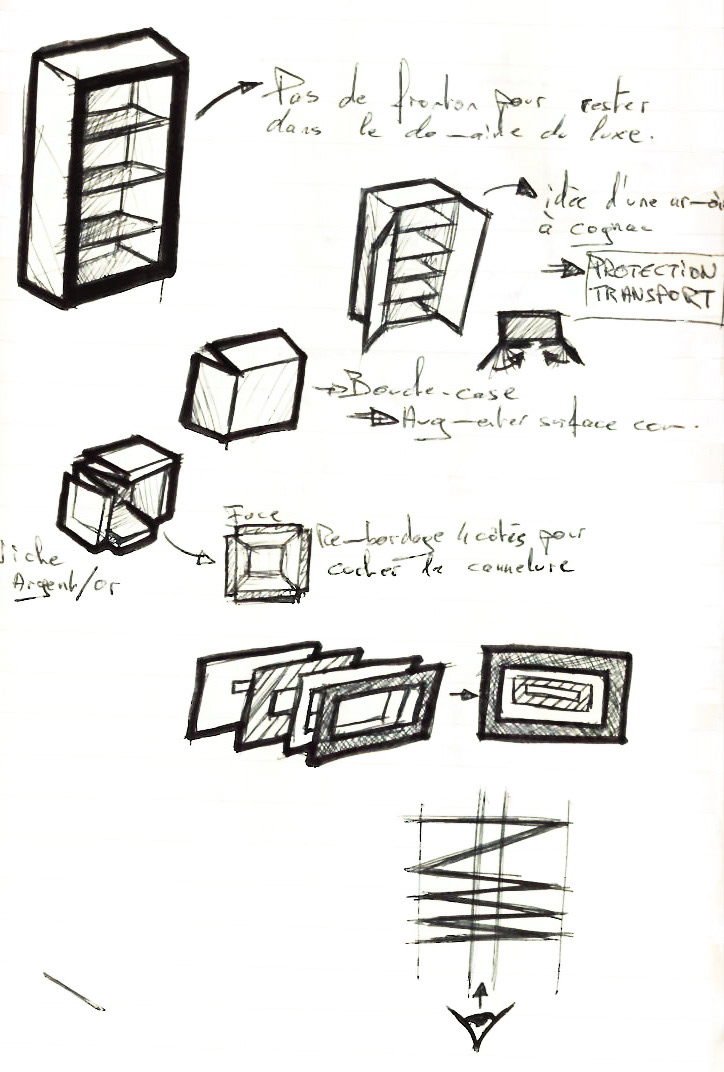 Pas de fronton pour rester
dans le domaine du luxe.
idée d'une armoi
à cognac
PROTECTION
TRANSPORT
Bouche-case
Augmenter surface com.
Face
Rembordage 4 côtés pour
cacher la cannelure
Argent/or